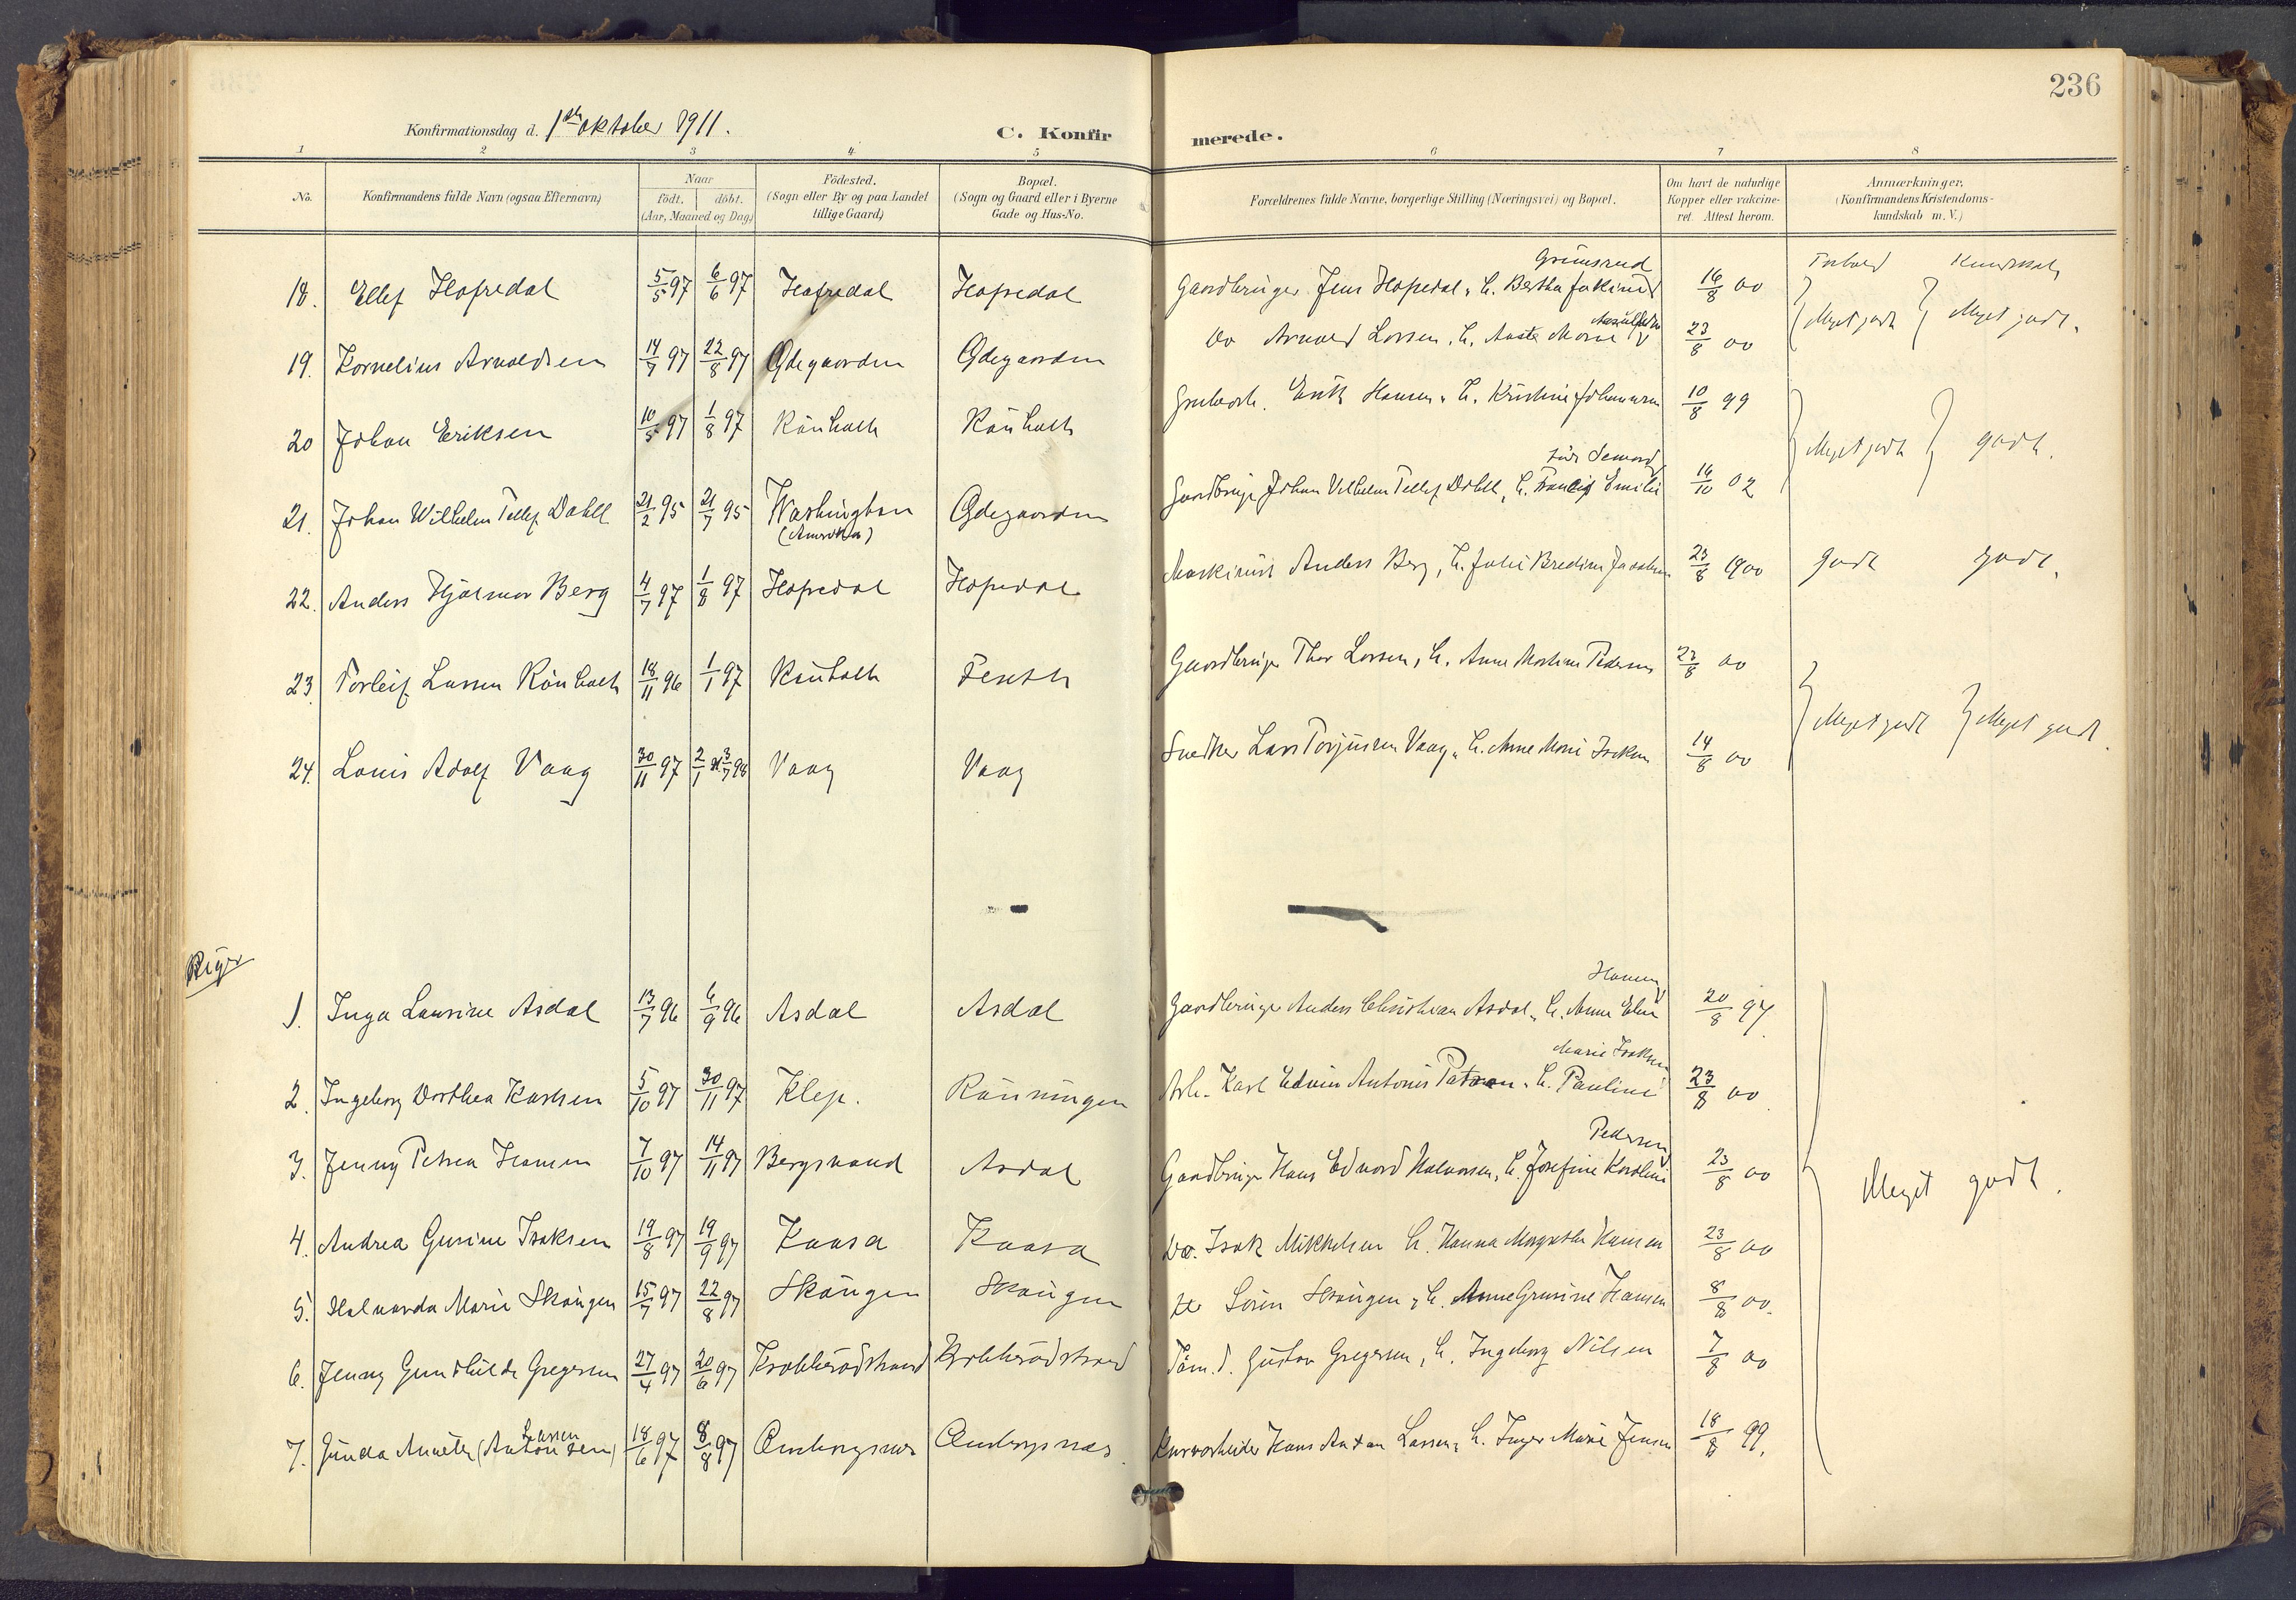 236
Konfirmationsdag d. 1ste oktober 1911.
C. Konfirmerede.
1 2 3 4 5 6 7 8
No.
Konfirmandens fulde Navn (ogsaa Efternavn)
Naar
födt. döbt.
(Aar, Maaned og Dag)
Födested.
(Sogn eller By og paa Landet
tillige Gaard)
Bopæl.
(Sogn og Gaard eller i Byerne
Gade og Hus-No.
Forældrenes fulde Navne, borgerlige Stilling (Næringsvei) og Bopæl.
Om havt de naturlige
Kopper eller vakcine-
ret. Attest herom.
Anmærkninger.
(Konfirmandens Kristendoms-
kundskab m. V.)
Forhold Kundskab
Grimsrud
18. Ellef Hopedal 5/5 97 6/6 97 Hopedal Hopedal Gaardbruger Jens Hopedal, h. Bertha Jokine 16/8 00 Meget godt Meget godt.
19. Kornelius Arnoldsen 14/7 97 22/8 97 Ødegaarden Ødegaarden Do Arnold Larsen, h. Marie 23/8 00
20 Johan Eriksen 10/5 97 1/8 97 Rönholt Rönholt Grubearb. Erik Hansen, h. Kristine Johannesen 10/8 99 Meget godt godt.
21. Johan Wilhelm Tellef Dahll 21/2 95 21/7 95 Washington Ødegaarden Gaardbruger Johan Vilhelm Tellef Dahll, h. Francis Emilie 16/10 02
(Amerika)
22. Anders Hjalmar Berg 4/7 97 1/8 97 Hopedal Hopedal Maskinist Anders Berg, h. Julie Bredine 23/8 1900 godt godt.
23. Torleif Larsen Rönholt 18/11 96 1/1 97 Rönholt Gaardbruger Thor Larsen, h. Anne Martine Pedersen 23/8 00 Meget godt Meget godt.
24. Louis Adolf Vaag 30/11 97 2/1 3/7 98 Vaag Vaag Snedker Lars Torjusen Vaag, h. Anne Marie Isaksen 14/8 00
Piger
Hansen
1. Inga Laurine Asdal 13/7 96 6/9 96 Asdal Asdal Gaardbruger Anders Christian Asdal, h. Anne Elise 20/8 97
Marie Isaksen
2. Ingeborg Dorthea Karlsen 5/10 97 30/11 97 Klep. Rönningen Arb. Karl Edvin Antonis h. Pauline 23/8 00
Pedersen
3. Jenny Petrea Hansen 7/10 97 14/11 97 Bergsland Asdal Gaardbruger Hans Edvard Halvorsen, h. Josefine Karoline 23/8 00 Meget godt.
4. Andrea Gurine Isaksen 19/8 97 19/9 97 Kaasa Kaasa Do. Isak Mikkelsen h. Hanna Margrethe Hansen 23/8 00
5. Halvarda Marie Skougen 15/7 97 22/8 97 Skougen Skougen Sören Skougen, h. Anne Gurine Hansen 8/8 00.
6. Jenny Gunhilde Gregersen 27/4 97 20/6 97 Krokkerödstrand Krokkerödstrand Töm.d. Gustav Gregersen, h. Ingeborg Nilsen 7/8 00
Larsen
7. Ginda Annette (Antonsen) 18/6 97 8/8 97 Omborgsnæs Omborgsnæs Hans Anton Larsen, h. Inger Marie Jensen 18/8 99.